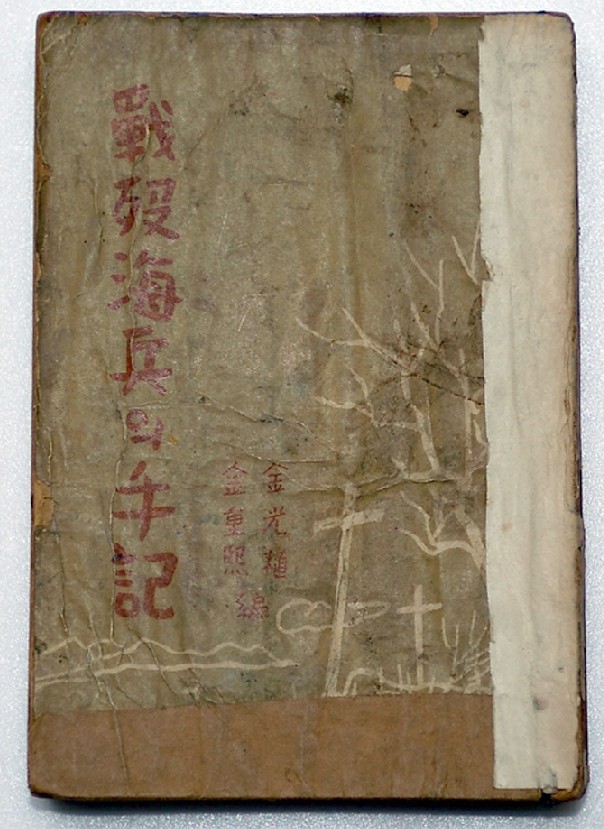 戰歿海兵의手記
金光植
金重熙
編